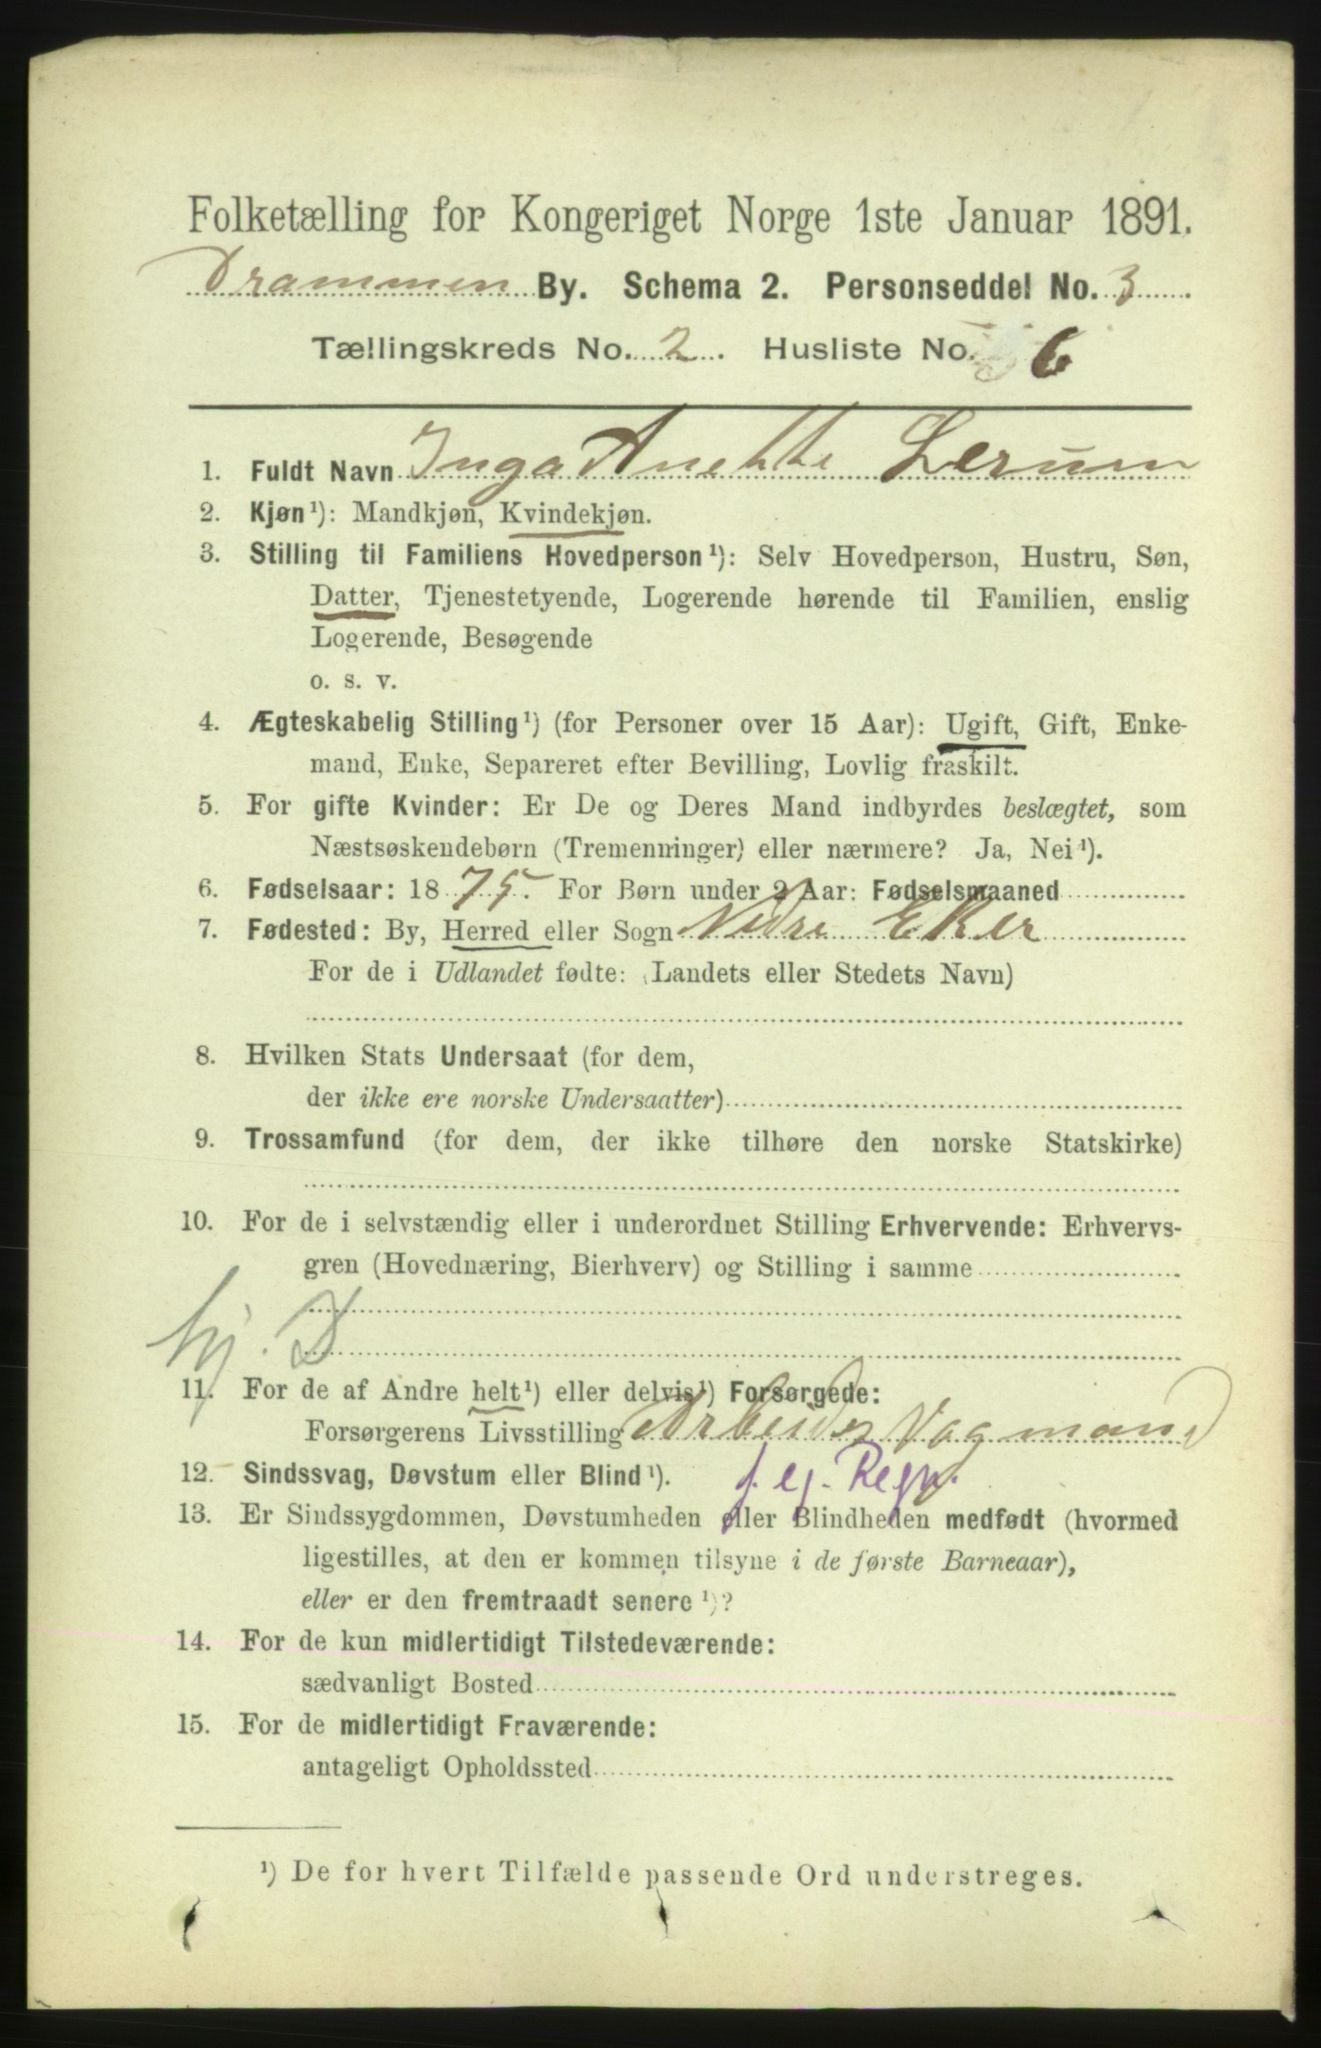 Folketælling for Kongeriget Norge 1ste Januar 1891.
Drammen By. Schema 2. Personseddel No. 3
Tællingskreds No. 2. Husliste No. 6
1. Fuldt Navn Inga Anette Lerum
2. Kjøn¹): Mandkjøn, Kvindekjøn.
3. Stilling til Familiens Hovedperson¹): Selv Hovedperson, Hustru, Søn,
Datter, Tjenestetyende, Logerende hørende til Familien, enslig
Logerende, Besøgende
o. s. v.
4. Ægteskabelig Stilling¹) (for Personer over 15 Aar): Ugift, Gift, Enke-
mand, Enke, Separeret efter Bevilling, Lovlig fraskilt.
5. For gifte Kvinder: Er De og Deres Mand indbyrdes beslægtet, som
Næstsøskendebørn (Tremenninger) eller nærmere? Ja, Nei¹).
6. Fødselsaar: 1875. For Børn under 2 Aar: Fødselsmaaned
7. Fødested: By, Herred eller Sogn Nedre Eker
For de i Udlandet fødte: (Landets eller Stedets Navn)
8. Hvilken Stats Undersaat (for dem,
der ikke ere norske Undersaatter)
9. Trossamfund (for dem, der ikke tilhøre den norske Statskirke)
10. For de i selvstændig eller i underordnet Stilling Erhvervende: Erhvervs-
gren (Hovednæring, Bierhverv) og Stilling i samme
hj. D
11. For de af Andre helt¹) eller delvis¹) Forsørgede:
Forsørgerens Livsstilling Arbeider Vogmand
12. Sindssvag, Døvstum eller Blind¹). f. eg. Regn.
13. Er Sindssygdommen, Døvstumheden eller Blindheden medfødt (hvormed
ligestilles, at den er kommen tilsyne i de første Barneaar),
eller er den fremtraadt senere¹)?
14. For de kun midlertidigt Tilstedeværende:
sædvanligt Bosted
15. For de midlertidigt Fraværende:
antageligt Opholdssted
¹) De for hvert Tilfælde passende Ord understreges.